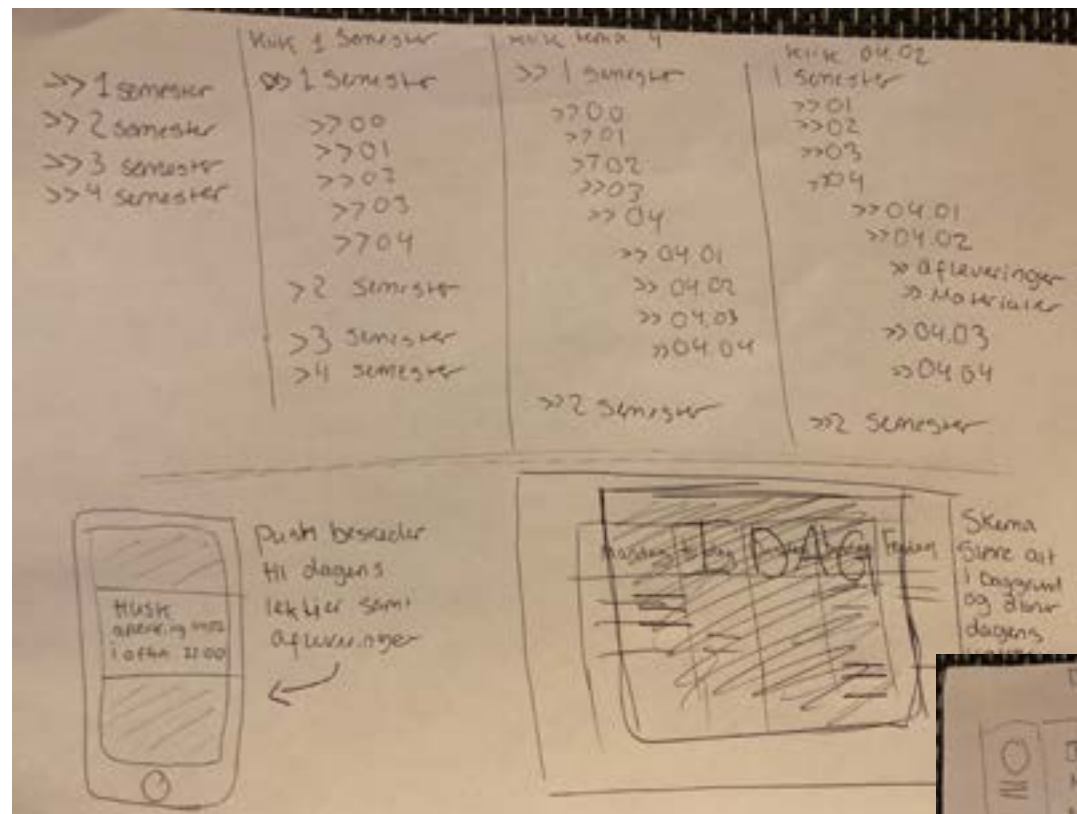 >> 1 semester
>> 2 semester
>> 3 semester
>> 4 semester
Klik 1 Semester
>> 1 semester
>> 00
>> 01
>> 02
>> 03
>> 04
> 2 semester
> 3 semester
> 4 semester
klik tema 4
>> 1 semester
>> 00
>> 01
>> 02
>> 03
>> 04
>> 04.01
>> 04.02
>> 04.03
>> 04.04
>> 2 semester
klik 04.02
1 semester
>> 01
>> 02
>> 03
>> 04
>> 04.01
>> 04.02
>> afleveringer
>> Materialer
>> 04.03
>> 04.04
>> 2 semester
HUSK
i aften
Push beskeder
til dagens
lektier samt
afleveringer
Mandag Fredag
I DAG
Skema
alt
i baggrund
og
dagens